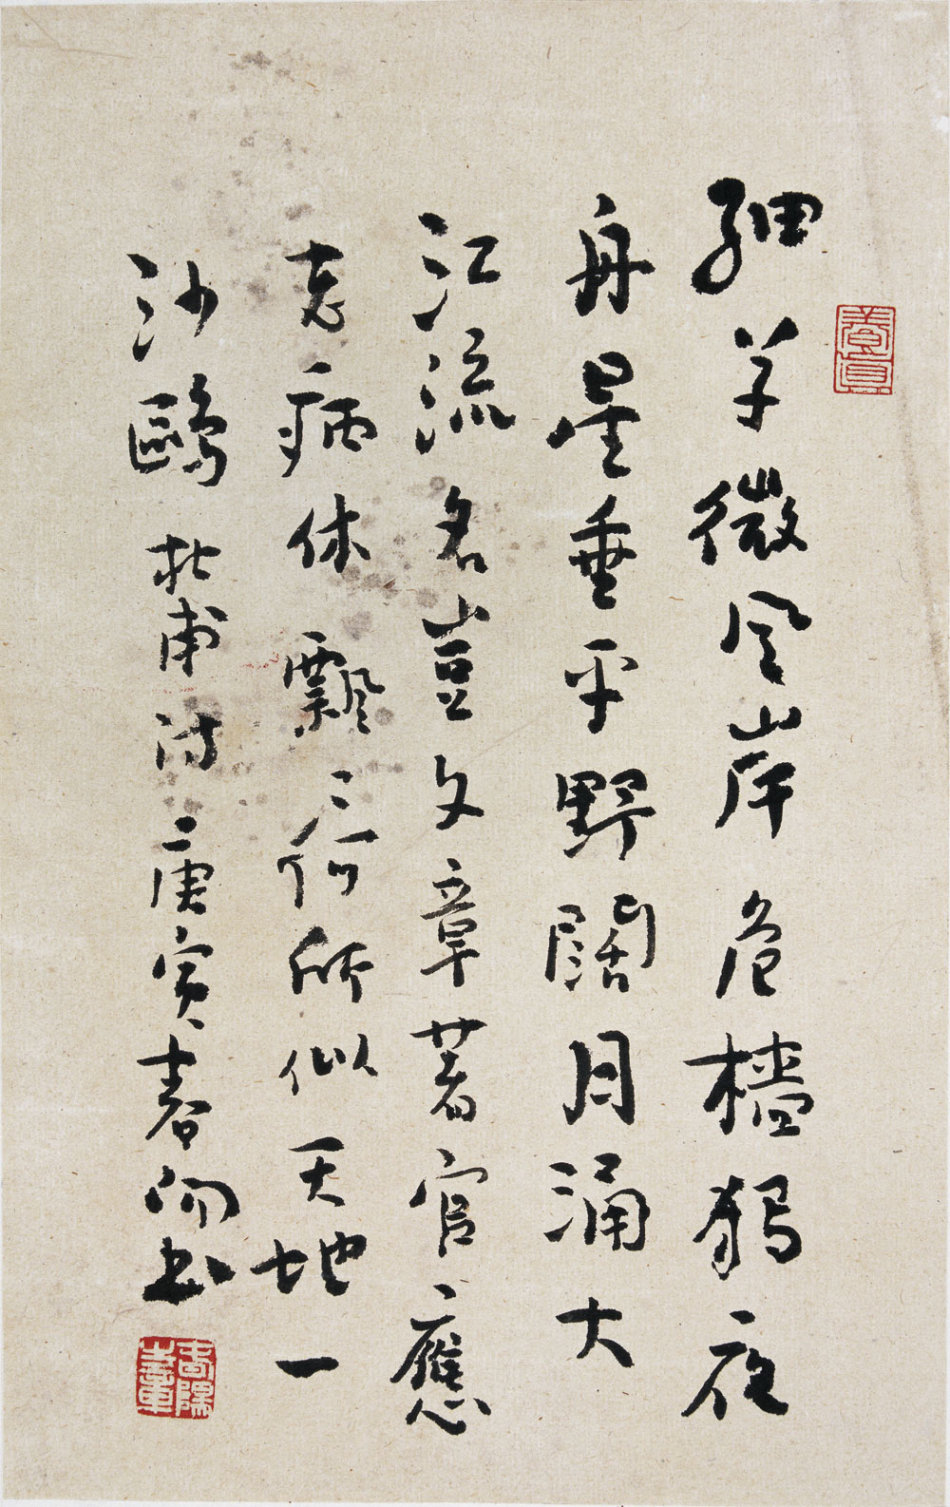 細草微風岸危檣獨夜
舟星垂平野闊月涌大
江流名豈文章著官應
老病休飄〻何所似天地一
沙鷗杜甫詩庚寅春向書